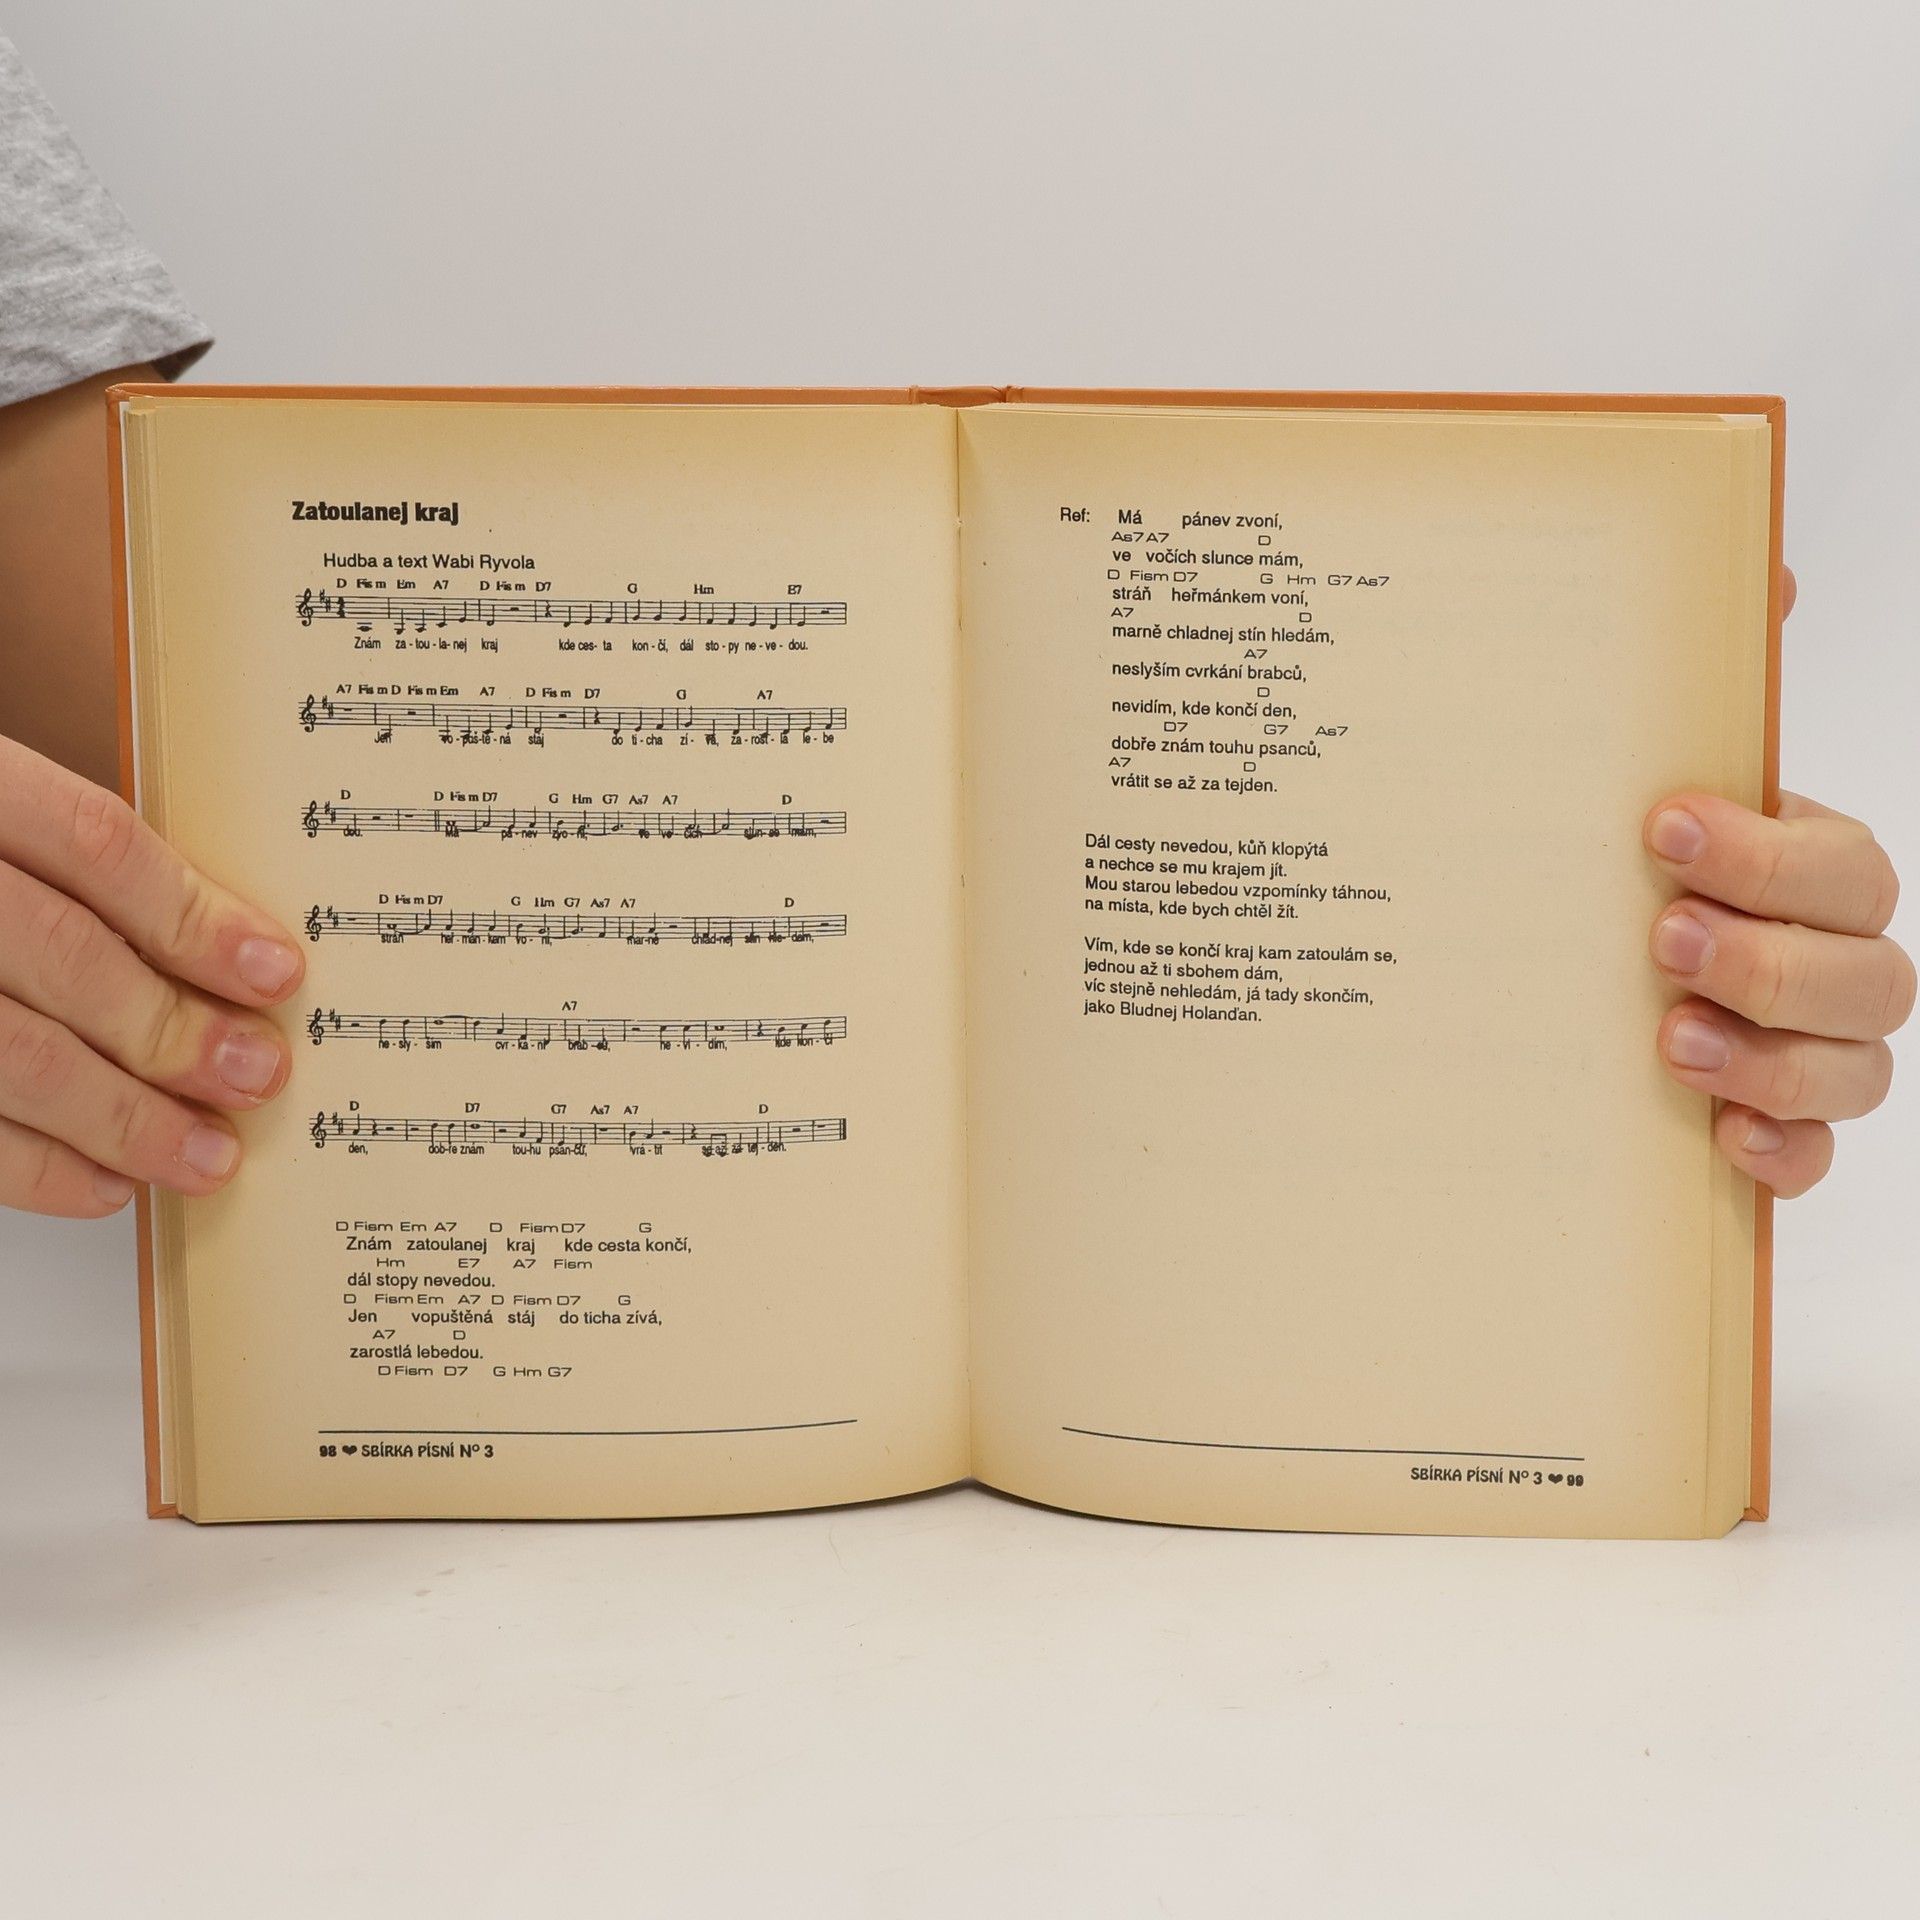 Zatoulanej kraj
Hudba a text Wabi Ryvola
D Fis m Em A7 D Fis m D7 G Hm E7
Znám za - tou - la - nej kraj kde ces - ta kon - čí, dál sto - py ne - ve - dou.
A7 Fis m D Fis m Em A7 D Fis m D7 G A7
Jen vo - puš - tě - ná stáj do ti - cha zí - vá, za - rost - lá le - be
D D Fis m D7 G Hm G7 As7 A7 D
dou. Má pá - nev zvo - ní, ve vo - čích slun - ce mám,
D Fis m D7 G Hm G7 As7 A7 D
stráň heř - mán - kem vo - ní, mar - ně chlad - nej stín hle - dám,
A7
ne - sly - ším cvr - ká - ní brab - ců, ne - vi - dím, kde kon - čí
D D7 G7 As7 A7 D
den, dob - ře znám tou - hu psan - ců, vrá - tit se až za tej - den.
D Fism Em A7 D Fism D7 G
Znám zatoulanej kraj kde cesta končí,
Hm E7 A7 Fism
dál stopy nevedou.
D Fism Em A7 D Fism D7 G
Jen vopuštěná stáj do ticha zívá,
A7 D
zarostlá lebedou.
D Fism D7 G Hm G7
98 ❤ SBÍRKA PÍSNÍ Nº 3
Ref: Má pánev zvoní,
As7 A7 D
ve vočích slunce mám,
D Fism D7 G Hm G7 As7
stráň heřmánkem voní,
A7 D
marně chladnej stín hledám,
A7
neslyším cvrkání brabců,
D
nevidím, kde končí den,
D7 G7 As7
dobře znám touhu psanců,
A7 D
vrátit se až za tejden.
Dál cesty nevedou, kůň klopýtá
a nechce se mu krajem jít.
Mou starou lebedou vzpomínky táhnou,
na místa, kde bych chtěl žít.
Vím, kde se končí kraj kam zatoulám se,
jednou až ti sbohem dám,
víc stejně nehledám, já tady skončím,
jako Bludnej Holanďan.
SBÍRKA PÍSNÍ Nº 3 ❤ 99